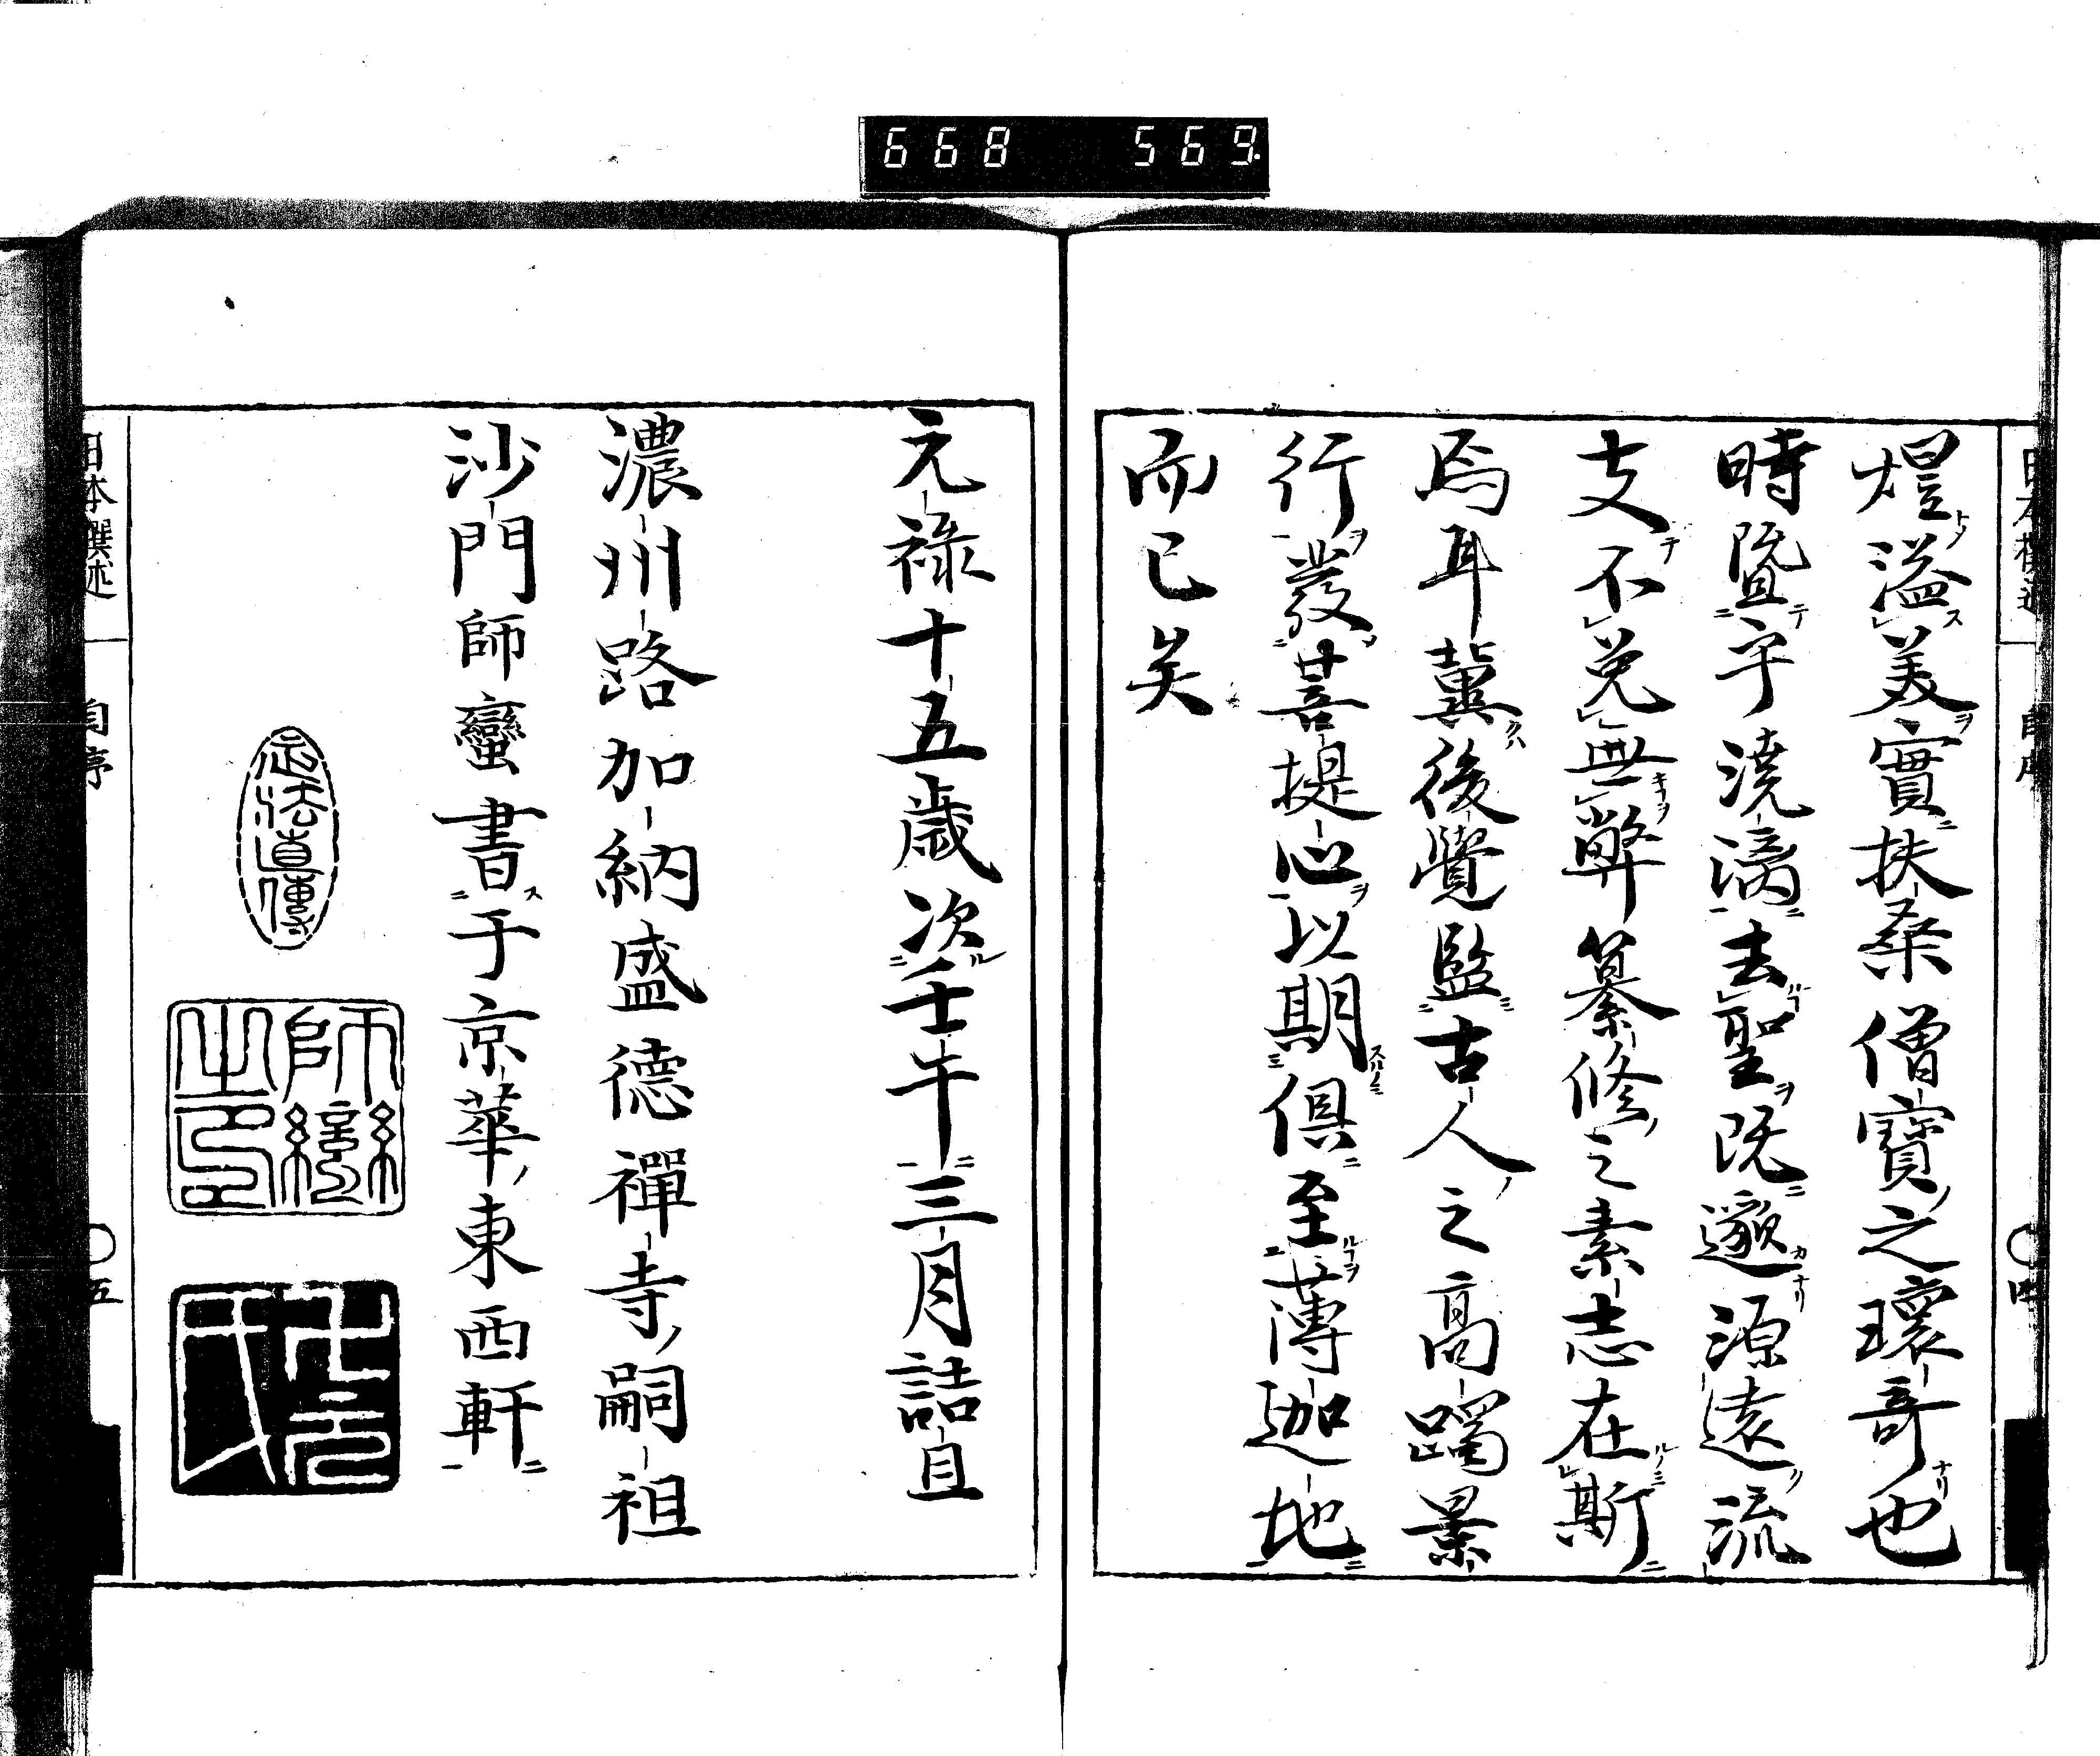 日本撰述 自序 〇四
煌溢美實扶桑僧寶之瓌奇也
時暨于澆漓去聖既邈源遠流
支不免無弊纂修之素志在斯
焉耳冀後覺監古人之高躅景
行發菩提心以期俱至薄迦地
而已矣
元禄十五歳次壬午三月詰旦
濃州路加納盛德禪寺嗣祖
沙門師蠻書于京華東西軒
正法直傳
師蠻之印
日本撰述 自序 〇五
668 569